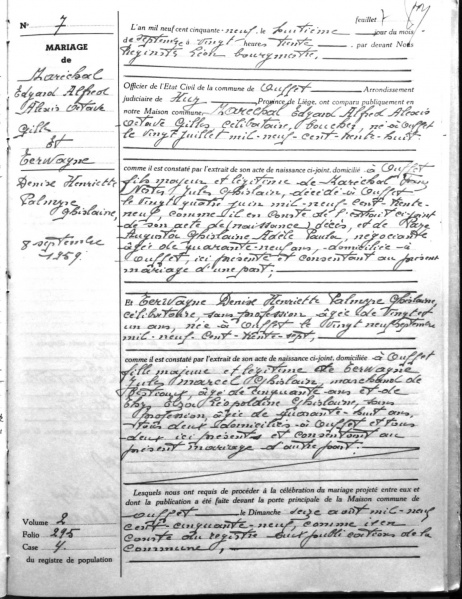 N° 7
MARIAGE
de
Maréchal
Edgard Alfred
Alexis Octave
Gille
Et
Terwagne
Denise Henriette
Palmyre
Ghislaine,
8 septembre
1959.
Volume 2
Folio 295
Case 4
du registre de population
feuillet 7
L'an mil neuf cent cinquante-neuf, le huitième jour du mois
de septembre à vingt heures trente, par devant Nous
bourgmestre,
Officier de l'Etat Civil de la commune de Ouffet Arrondissement
judiciaire de Huy Province de Liège, ont comparu publiquement en
notre Maison commune, Maréchal Edgard Alfred Alexis
Octave Gilles, célibataire, boucher, né à Ouffet
le vingt juillet mil-neuf-cent-trente-huit
comme il est constaté par l'extrait de son acte de naissance ci-joint, domicilié à Ouffet
fils majeur et légitime de Maréchal
Jules Ghislain, décédé à Ouffet
le vingt quatre juin mil-neuf-cent-trente-
neuf, comme il en conste de l'extrait ci-joint
de son acte de décès, et de
Augusta Ghislaine Adèle Paula, négociante
âgée de quarante-neuf ans, domiciliée à
Ouffet, ici présente et consentant au présent
mariage d'une part;
Et Terwagne Denise Henriette Palmyre Ghislaine,
célibataire, sans profession, âgée de vingt et
un ans, née à Ouffet le vingt neuf septembre
mil-neuf-cent-trente-sept,
comme il est constaté par l'extrait de son acte de naissance ci-joint, domiciliée à Ouffet
fille majeure et légitime de Terwagne
Jules Marcel Ghislain, marchand de
bestiaux, âgé de cinquante ans et de
Léopoldine Ghislaine, sans
profession, âgée de quarante-huit ans,
tous deux domiciliés à Ouffet et tous
deux ici présents et consentant au
présent mariage d'autre part.
Lesquels nous ont requis de procéder à la célébration du mariage projeté entre eux et
dont la publication a été faite devant la porte principale de la Maison commune de
Ouffet le Dimanche seize août mil-neuf
cent-cinquante-neuf, comme il en
conste du registre aux publications de la
Commune;